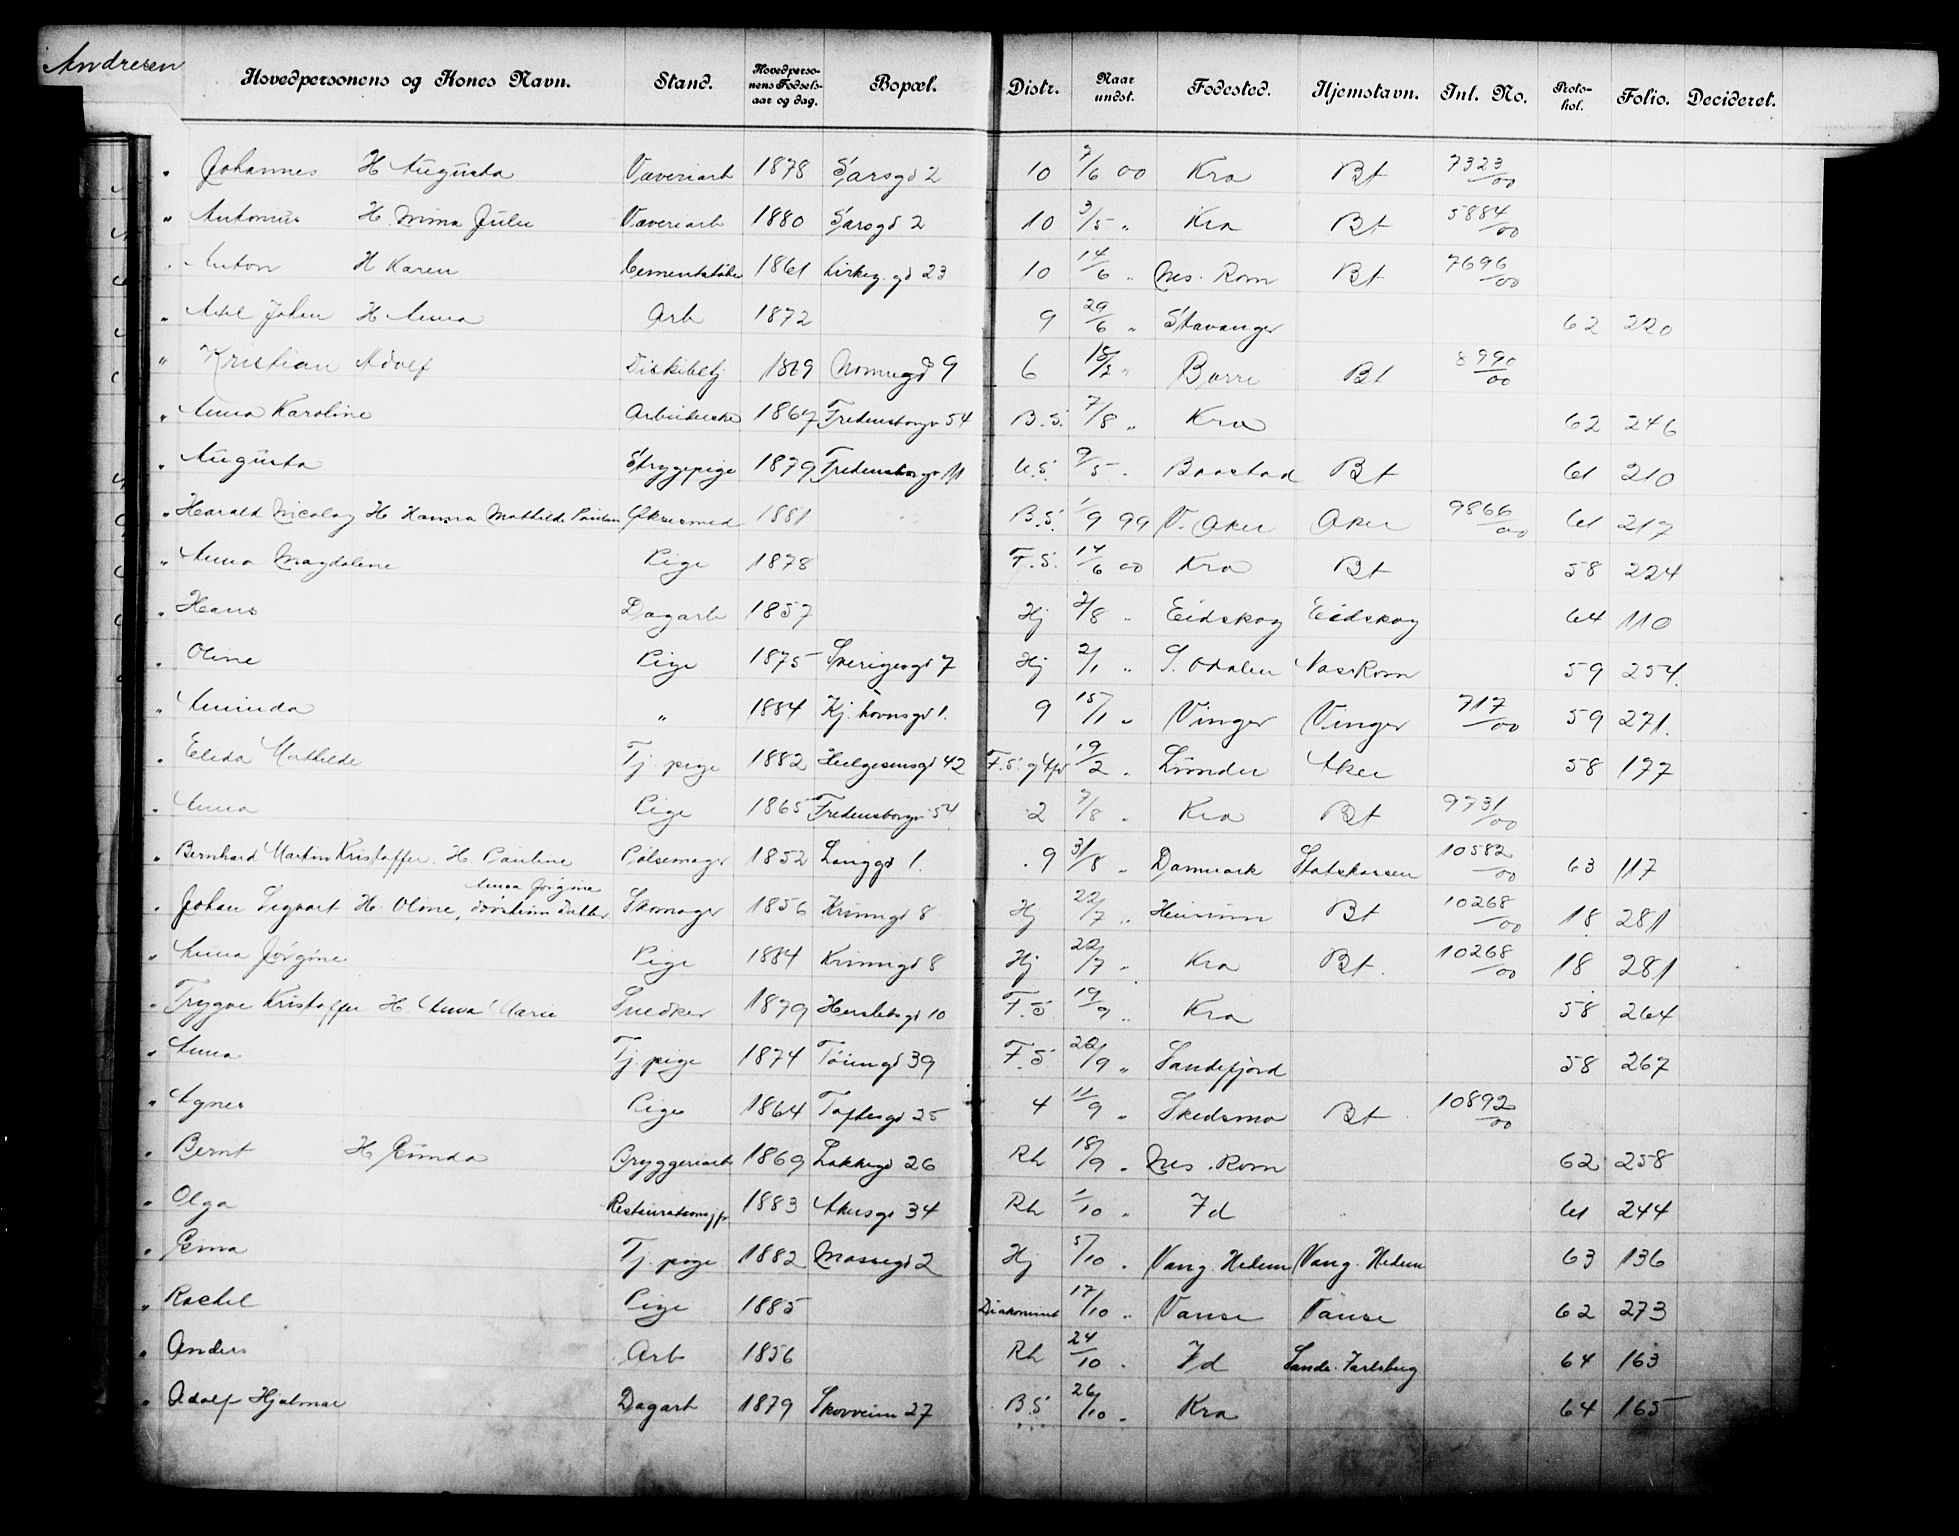 Andresen
Hovedpersonens og Kones Navn. Stand. Hovedpersonens Fødselsaar og dag. Bopæl. Distr. Naar undst. Fødested. Hjemstavn. Int. No. Protokol. Folio. Decideret.
" Johannes H Augusta Væveriarb 1878 Sarsgd 2 10 7/6 00 Kra Bt 7323/00
" Antonius H. Nima Julie Væveriarb 1880 Sarsgd 2 10 3/5 " Kra Bt 5884/00
" Anton H Karen 1861 Kirkeg. gd 23 10 14/6 " Nes. Rom Bt 7696/00
" Axel Johan H Anna Arb 1872 9 29/6 " Stavanger 62 220
" Kristian Adolf 1869 9 6 18/7 " Borre Bt 8990/00
" Anna Karoline Arbeiderske 1867 Fredensborgv 54 B.S. 7/8 " Kra 62 246
" Augusta Strygepige 1879 Fredensborgv 11 U.S. 9/5 " Baastad Bt 61 210
" Harald Nicolay H Hanna Mathilde Paulsen 1881 B.S. 1/9 99 V. Aker Aker 9866/00 61 217
" Anna Magdalene Pige 1878 F.S. 14/6 00 Kra Bt 58 224
" Hans Dagarb 1857 Hj 2/8 " Eidskog Eidskog 64 110
" Oline Pige 1875 Sverigesgd 7 Hj 2/1 " S. Odalen Næs Rom 59 254.
" Aminda " 1884 Kj. havnsgd 1. 9 15/1 " Vinger Vinger 717/00 59 271.
" Elida Mathilde Tj. pige 1882 Helgesensgd 42 F.S. 19/2 " Lunder Aker 58 177
" Anna Pige 1865 Fredensborgv 54 2 7/8 " Kra Bt 9731/00
" Bernhard Martin Kristoffer. H Pauline Pølsemager 1852 Langgd 1. 9 31/8 " Danmark Statskassen 10582/00 63 117
Anna Jørgine
" Johan Sigvart H. Oline, Datter Skomager 1856 8 Hj 22/7 " Bt 10268/00 18 281
" Anna Jørgine Pige 1884 8 Hj 22/7 " Kra Bt. 10268/00 18 281
" Trygve Kristoffer H. Anna Marie Snedker 1879 Herslebsgd 10 F.S. 19/9 " Kra 58 264
" Anna Tj. pige 1874 Tøiengd 39 F.S. 22/9 " Sandefjord 58 267
" Agnes Pige 1864 Toftesgd 25 4 11/9 " Skedsmo Bt 10892/00
" Bernt H Gunda Bryggeriarb 1869 Lakkegd 26 Rh 18/9 " Nes. Rom 62 258
" Olga Restaurationsjfr 1883 Akersgd 34 Rh 1/10 " Id 61 244
" Gina Tj. pige 1882 Mossegd 2 Hj 5/10 " Vang. Hedem Vang. Hedem 63 136
" Rachel Pige 1885 Diakonint 17/10 " Vanse Vanse 62 273
" Anders Arb 1856 Rh 24/10 " Id Sande. Jarlsberg 64 163
" Adolf Hjalmar Dagarb 1879 Skovveien 27 B.S. 26/10 " Kra 64 165